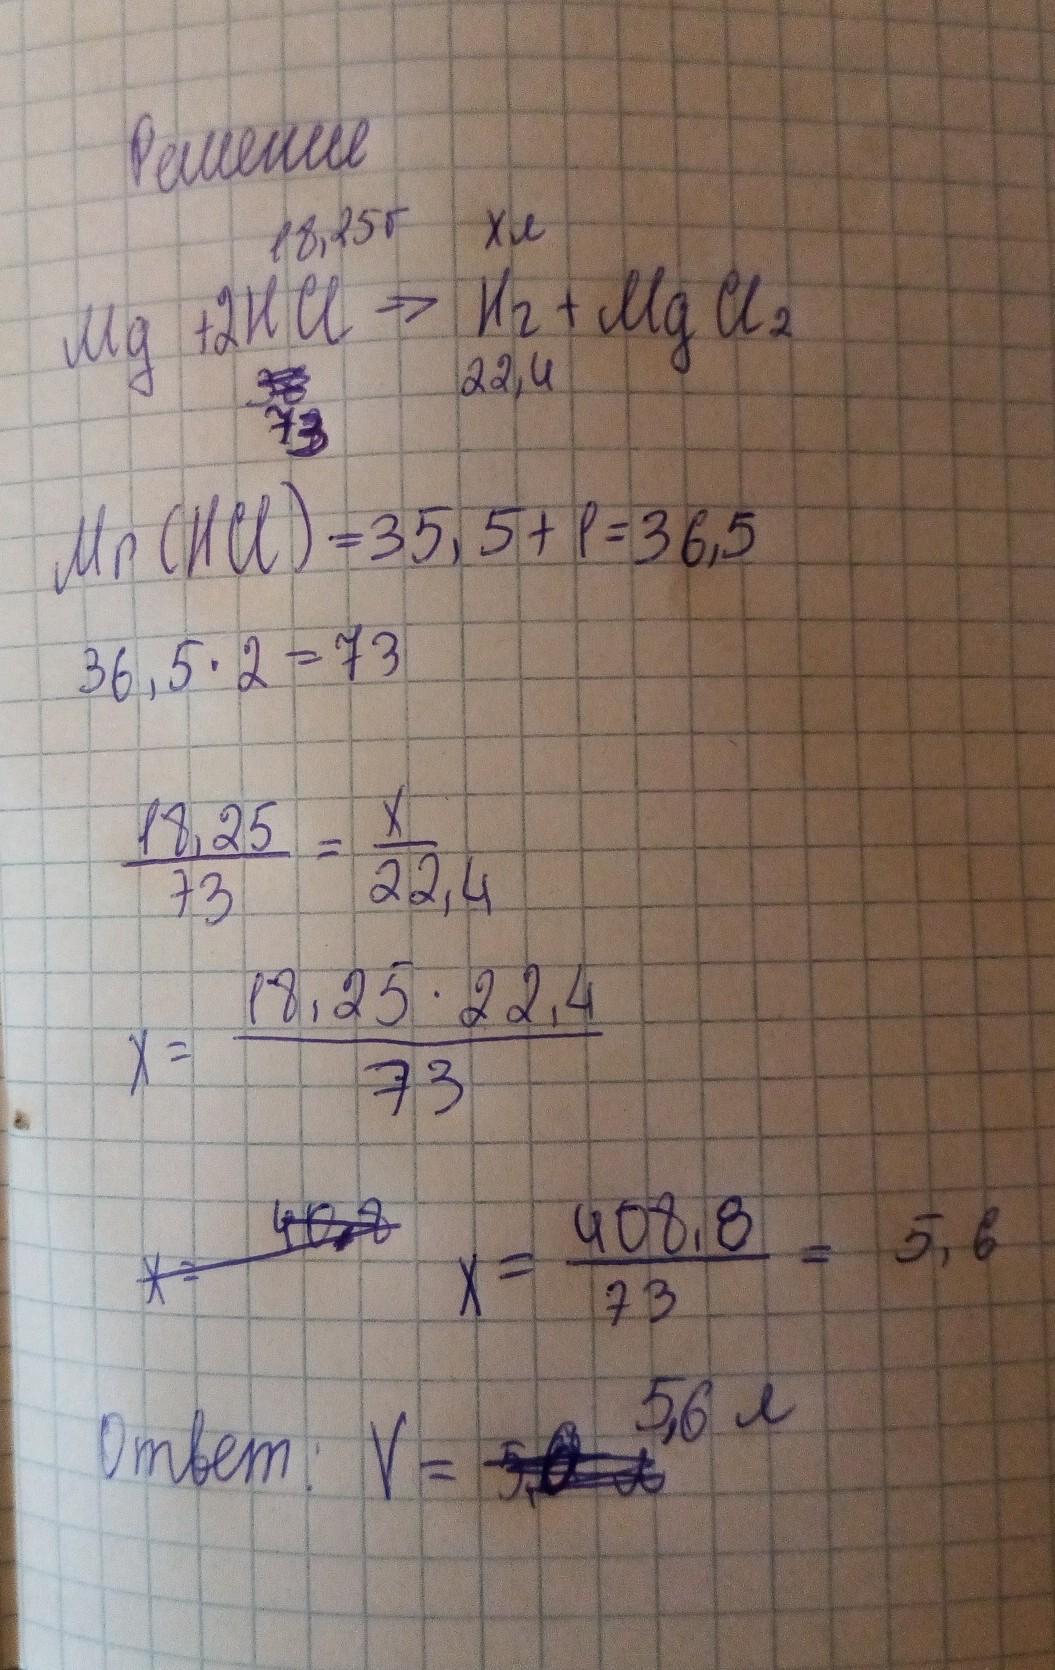 Решение
18,25г хл
Mg +2HCl => H2 + MgCl2
73 22,4
Mr(HCl) = 35,5+1=36,5
36,5·2=73
18,25/73 = x/22,4
x = 18,25·22,4/73
x = 40,8
x = 408,8/73 = 5,6
Ответ: V = 5,6 л